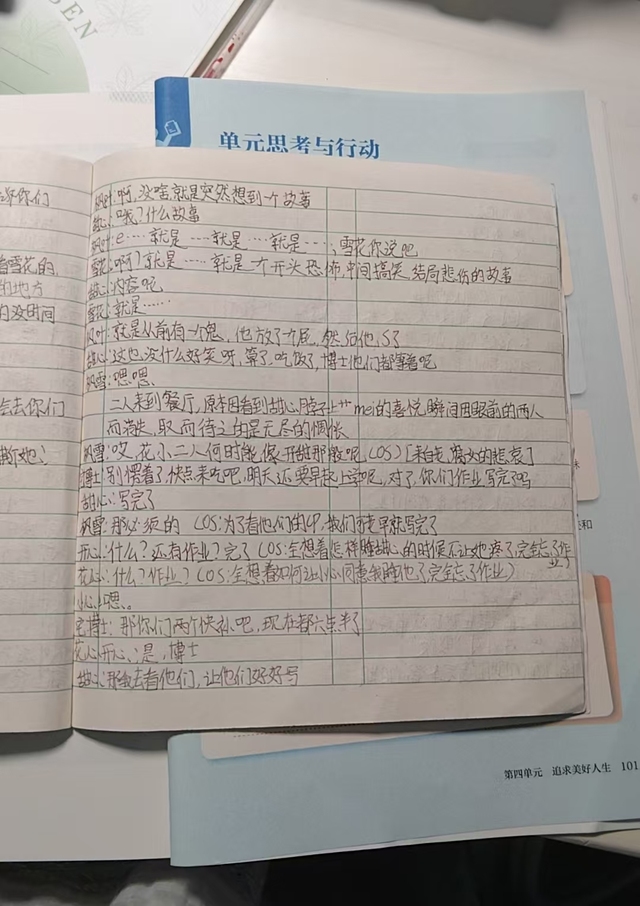 SEN
单元思考与行动
你们
枫叶:啊,没啥就是突然想到一个故事
甜心:哦?什么故事
枫叶:e……就是……就是……就是……,雪花你说吧
着雪花的,
雪花:啊?就是……就是一个开头恐怖,中间搞笑,结局悲伤的故事
的地方
甜心:内容呢
的没时间
雪花:就是……
枫叶:就是从前有一个鬼,他放了个屁,然后他,死了
甜心:这也没什么好笑呀,算了,吃饭了,博士他们都等着呢
枫雪:嗯嗯、
会去你们
二人来到餐厅,原本因看到甜心脖子上 mei的喜悦瞬间因眼前的两人
而消失,取而待之的是无尽的惆怅
枫雪:哎,花、小二人何时能 开始那般呢(OS)[来自 腐女的悲哀]
她?
博士:别愣着了,快点来吃吧,明天还要早起上学呢,对了,你们作业写完了吗
甜心:写完了
枫雪:那必须的 (OS:为了看他们的CP,我们可是早就写完了
开心:什么?还有作业?完了(OS:全想着怎样睡甜心的时候不让她疼了,完全忘了作业)
花心:什么?作业?(OS:全想着如何让小心同意我睡他了完全忘了作业)
小心:嗯。
宅博士:那你们两个快补吧,现在都六点半了
花心开心:是,博士
甜心:那我去看他们,让他们好好写
第四单元 追求美好人生 101